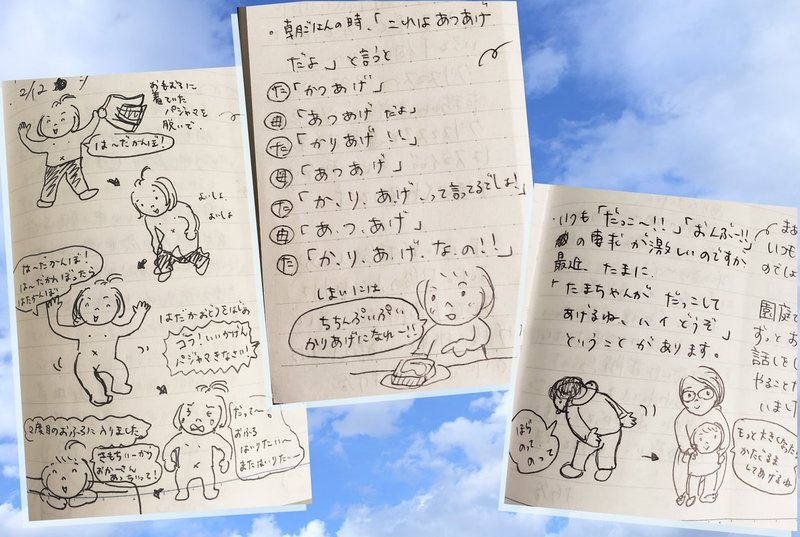 2/12
おもむろに
着ていた
パジャマを
脱いで、
は〜だかんぼ!
よいしょ、
よいしょ
は〜だかんぼ!
は〜だかんぼったら
はだかんぼ!
はだかおどりをはじめ
コラ!いいかげん
パジャマきなさい!
だって〜、
おふろ
はいりたい〜
またはいりたい〜
2度目のおふろに入りました
きもちい〜から
おか〜さん
あっちいって!
・朝ごはんの時、「これはあつあげ
だよ」と言うと
た「かつあげ」
母「あつあげだよ」
た「かりあげ!!」
母「あつあげ」
た「か、り、あげ、って言ってるでしょ!」
母「あ、つ、あげ」
た「か、り、あ、げ、な、の!!」
しまいには
ちちんぷいぷい
かりあげになれ〜!!
・いつも「だっこ〜!!」「おんぶ〜!!」
の要求が激しいのですが
最近、たまに、
「たまちゃんが だっこして
あげるね、ハイどうぞ」
ということがあります。
ほら
のって、
のって
もっと大きくなったら
かたぐるま
してあげるね
まあ
いつも
のでしょ
園庭で
ずっとお
話しをし
やること
いまし